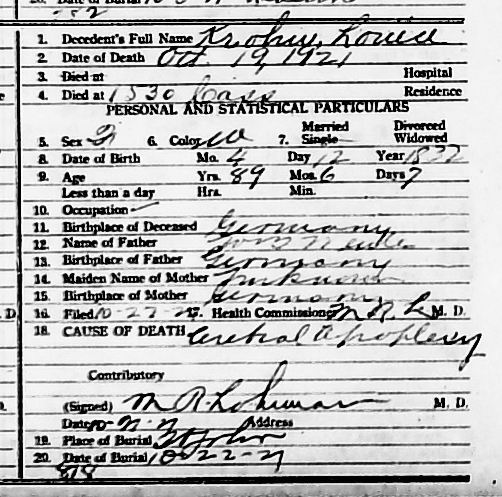 20. Date of Burial
1. Decedent's Full Name Krohn, Louise
2. Date of Death Oct 19, 1921
3. Died at Hospital
4. Died at 1530 Cass Residence
PERSONAL AND STATISTICAL PARTICULARS
Married Divorced
5. Sex F 6. Color W 7. Single Widowed
8. Date of Birth Mo. 4 Day 12 Year 1832
9. Age Yrs. 89 Mos. 6 Days 7
Less than a day Hrs. Min.
10. Occupation
11. Birthplace of Deceased Germany
12. Name of Father
13. Birthplace of Father Germany
14. Maiden Name of Mother Unknown
15. Birthplace of Mother Germany
16. Filed 10-22-21 17. Health Commissioner M. D.
18. CAUSE OF DEATH Cerebral Apoplexy
Contributory
(Signed) M R Lohuman M. D.
Date Address
19. Place of Burial St John
20. Date of Burial 10-22-21